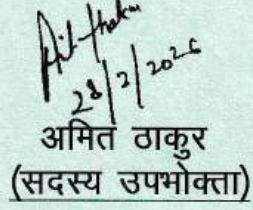 28/2/2026
अमित ठाकुर
(सदस्य उपभोक्ता)